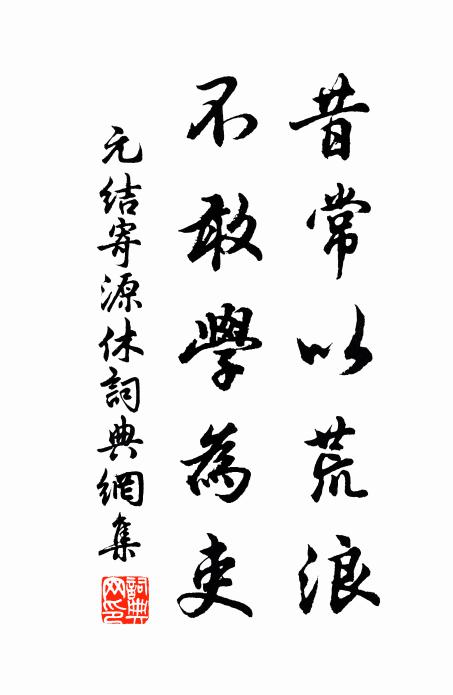 昔常以荒浪
不敢學為吏
元結寄源休詞典網集
詞典網印